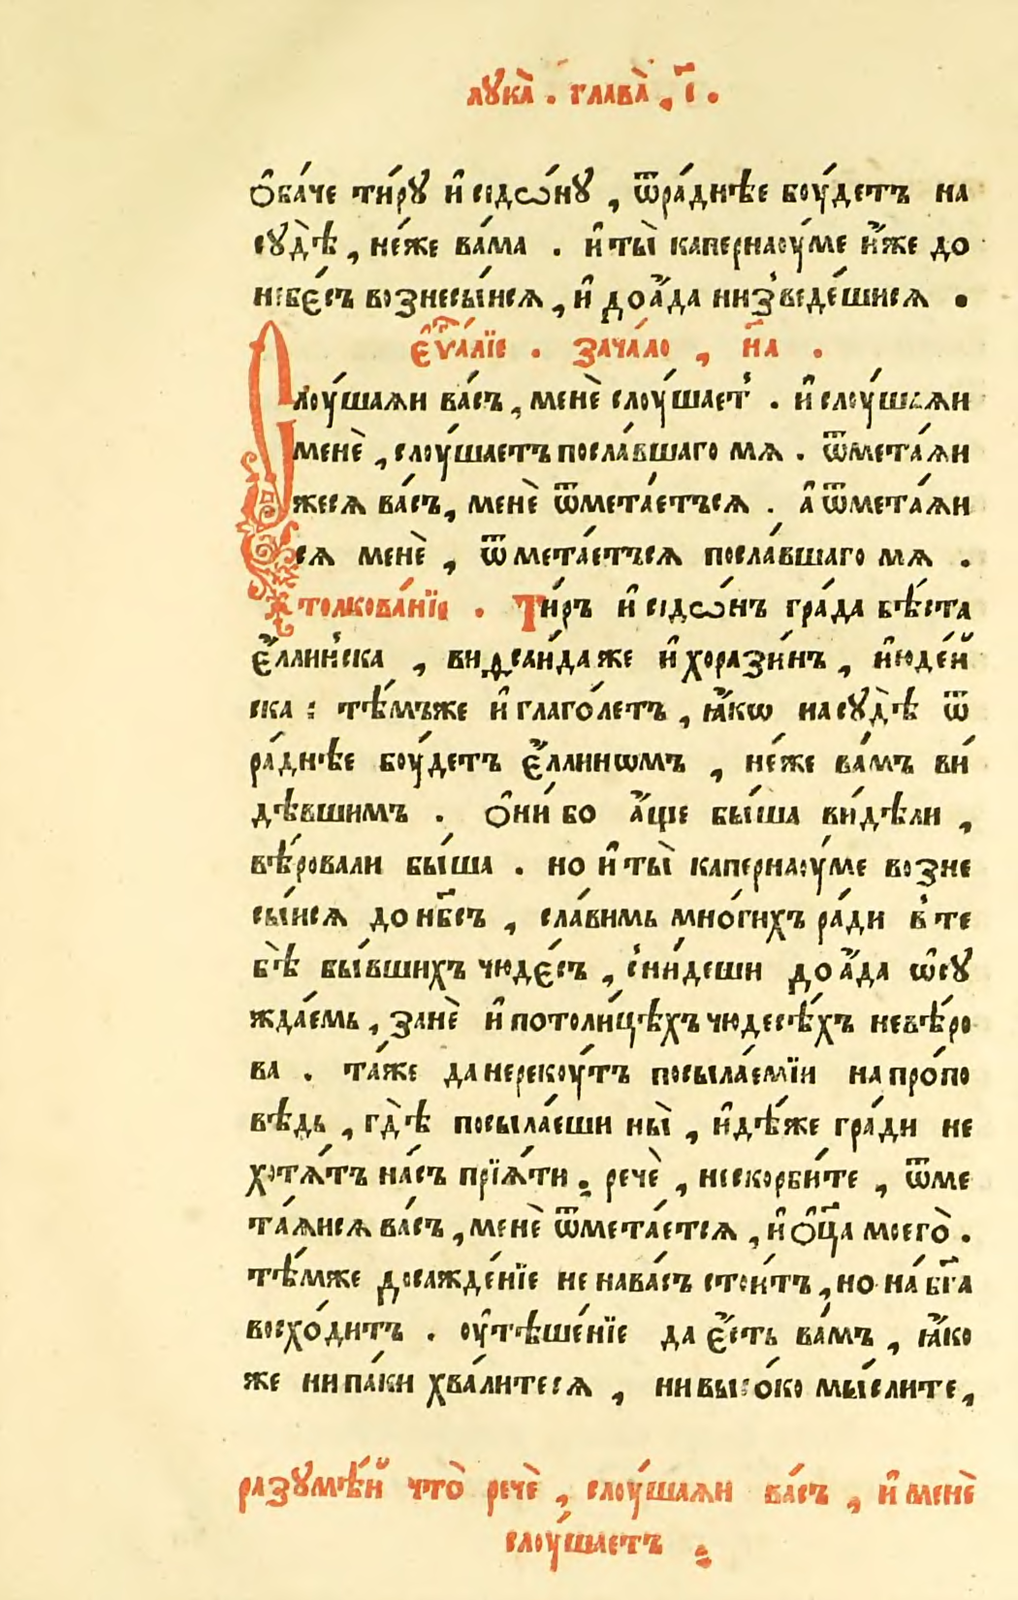 лꙋка̀ . глава̀ , і҃ .
ѻ҆ба́че ти́рꙋ и҆ сідѡ́нꙋ , ѿра́днѣе боу́детъ на
сꙋдѣ̀ , не́же ва́ма . и҆ ты̀ капернаоу́ме и҆́же до
небе́съ вознесы́исѧ , и҆ до а҆́да низ̾веде́шисѧ .
є҆ѵⷢ҇а́лїе . зача́ло , н҃а .
Слоу́шаѧи ва́съ , менѐ слоу́шает̾ . и҆ слоу́шаѧи
менѐ , слоу́шаетъ посла́вшаго мѧ . ѿмета́ѧи
жесѧ ва́съ , менѐ ѿмета́етъсѧ . а҆ ѿмета́ѧи
сѧ менѐ , ѿмета́етъсѧ посла́вшаго мѧ .
толкова́нїе . Ти́ръ и҆ сідѡ́нъ гра́да бѣ́ста
є҆́ллин̾ска , виѳсаи́да же и҆ хорази́нъ , и҆юде́й
ска : тѣ́мъже и҆ глаго́летъ , ꙗ҆́кѡ на сꙋдѣ̀ ѿ
ра́днѣе боу́детъ є҆́ллинѡмъ , не́же ва́мъ ви́
дѣвшимъ . ѻ҆ни́ бо а҆́ще бы́ша ви́дѣли ,
вѣ́ровали бы́ша . но и҆ ты̀ капернаоу́ме возне
сы́исѧ до нб҃съ , сла́вимь мно́гихъ ра́ди в̾ те
бѣ̀ бы́вшихъ чюде́съ , с̾ни́деши до а҆́да ѡ҆сꙋ
жда́емь , занѐ и҆ потоли́цѣхъ чюдесѣ́хъ невѣ́ро
ва . та́же да нерекоу́тъ посыла́емїи на про́по
вѣдь , гдѣ̀ посыла́еши ны̀ , и҆дѣ́же гра́ди не
хотѧ́тъ на́съ прїѧ́ти . речѐ , нескорби́те , ѿме
та́ѧисѧ ва́съ , менѐ ѿмета́етсѧ , и҆ ѻ҆ц҃а моего̀ .
тѣ́мже досажде́нїе не нава́съ стои́тъ , но на́ бг҃а
восхо́дитъ . оу҆тѣше́нїе да є҆́сть ва́мъ , ꙗ҆́ко
же ни па́ки хва́литесѧ , ни высо́ко мы́слите ,
разꙋмѣ́й что̀ речѐ , слоу́шаѧи ва́съ , и҆ менѐ
слоу́шаетъ .